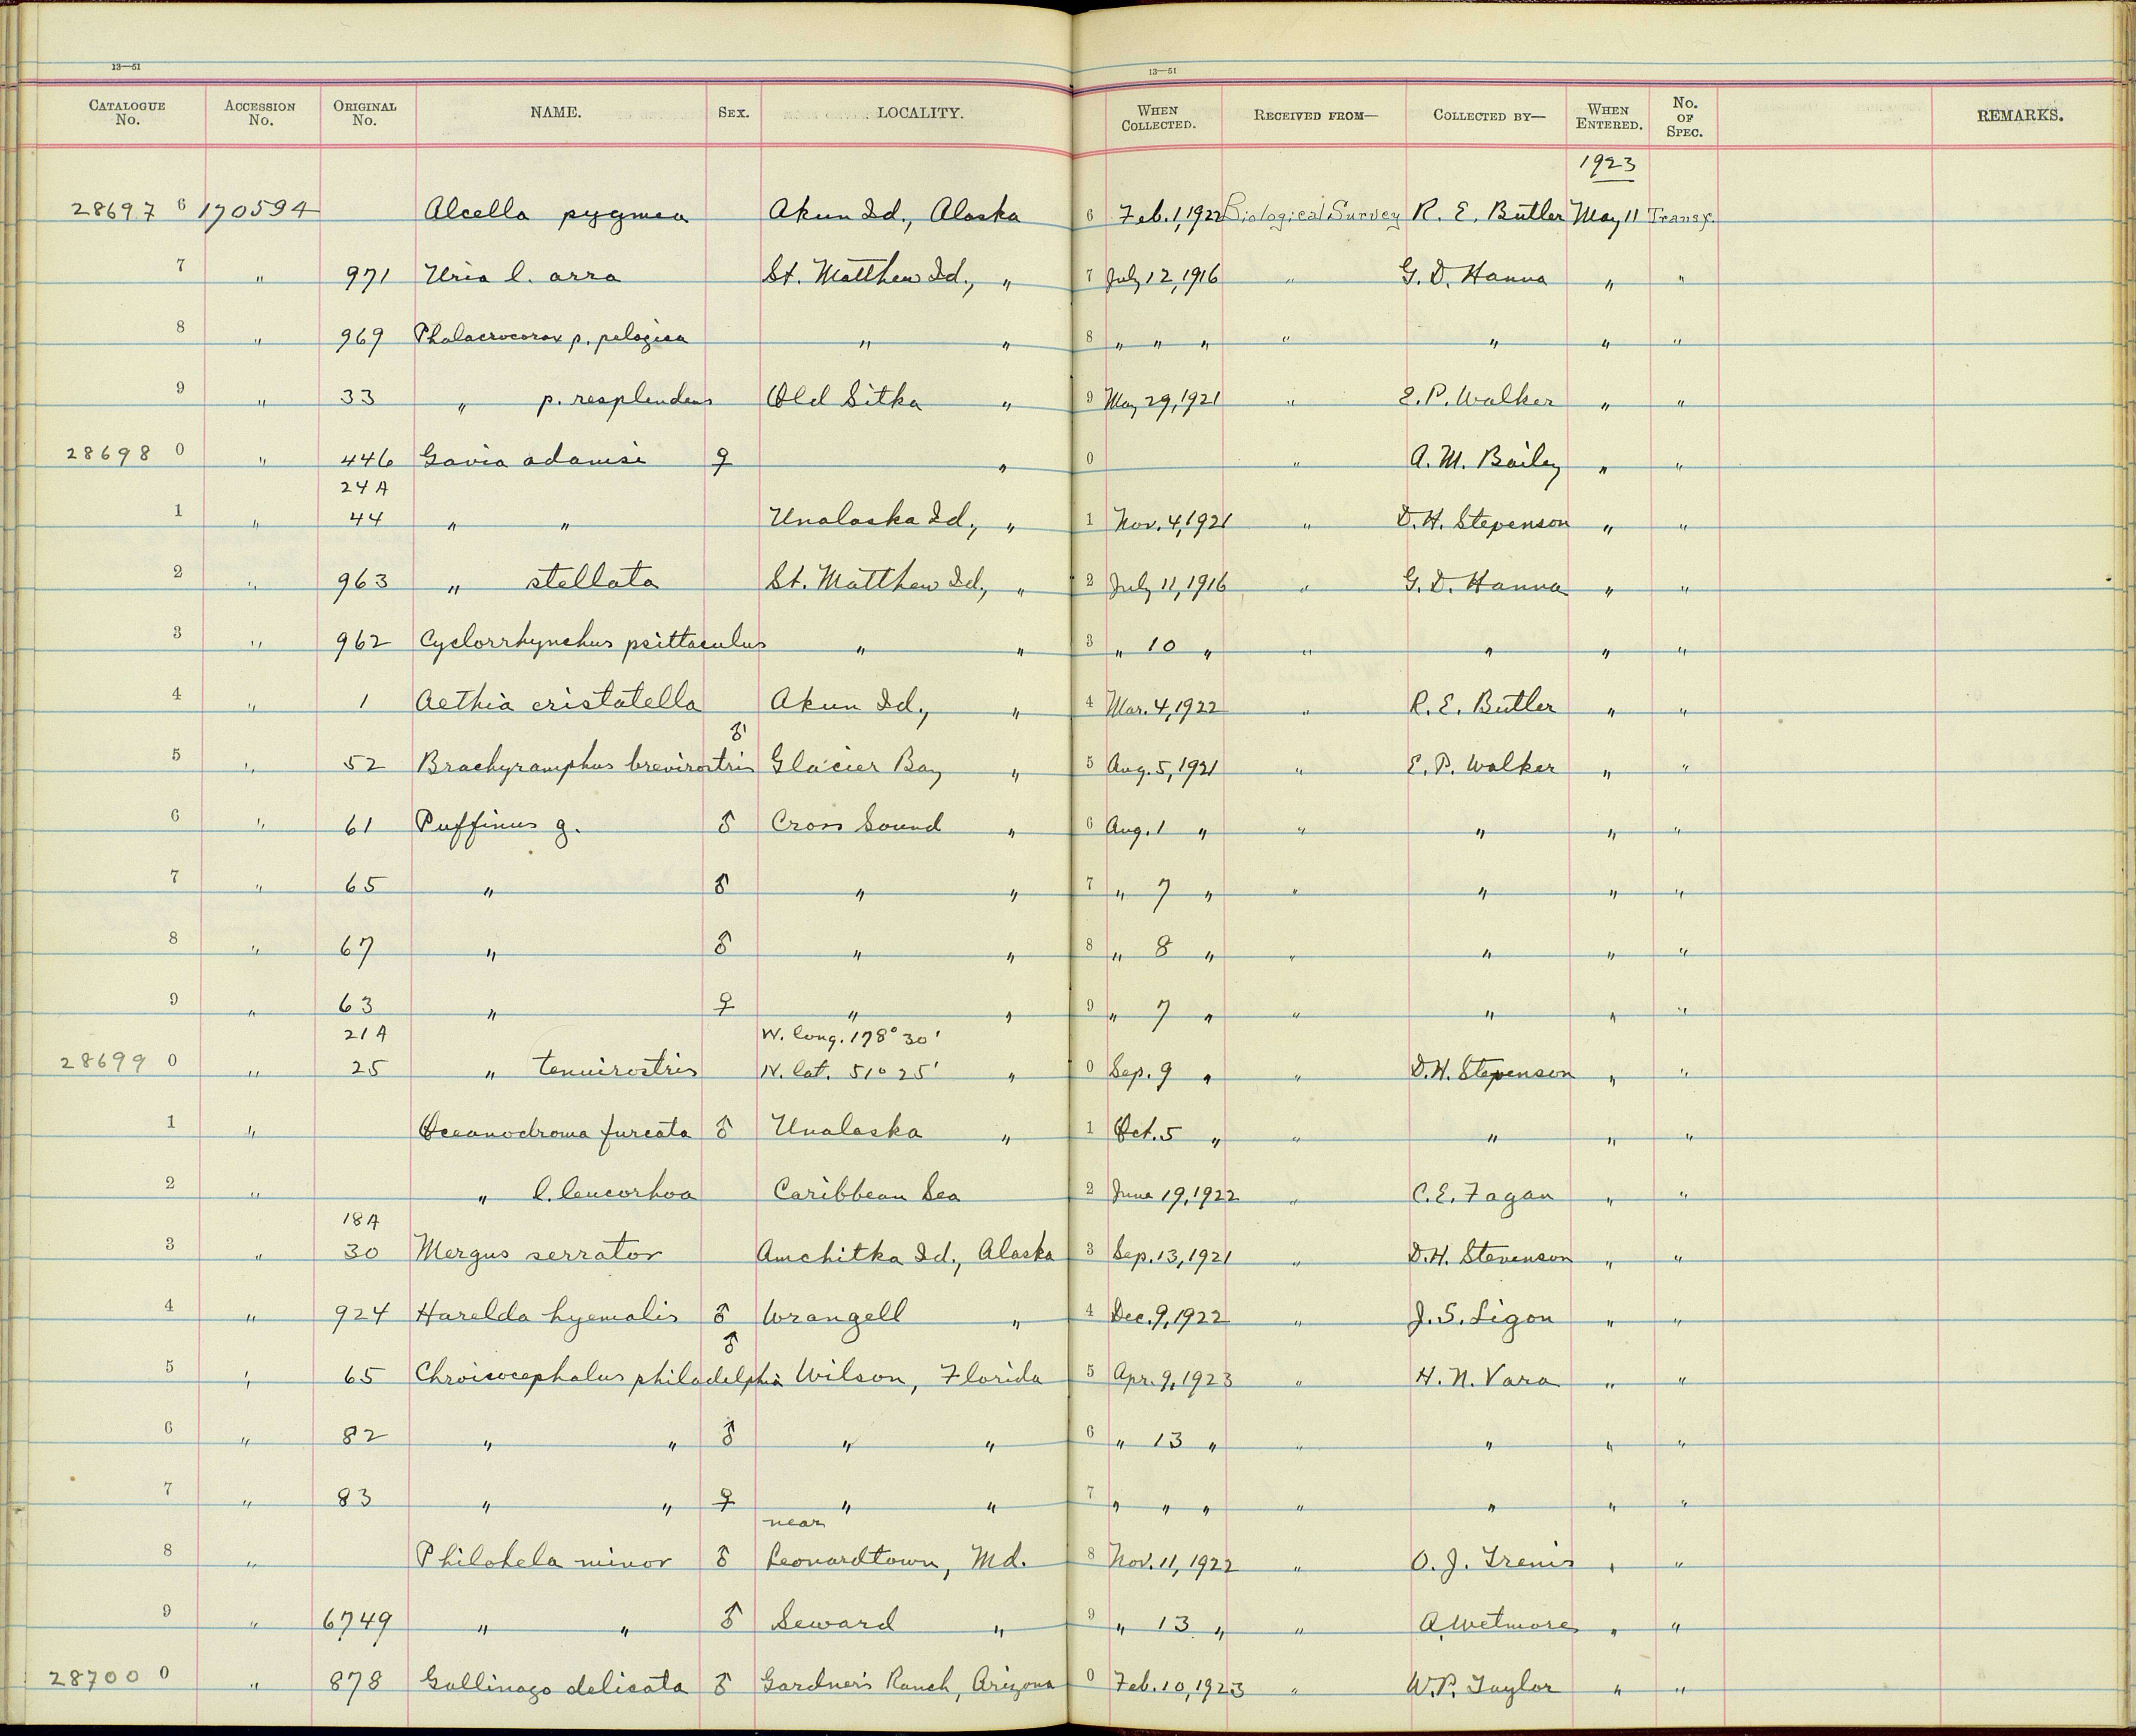 13—51 13—51
CATALOGUE No. ACCESSION No. ORIGINAL No. NAME. SEX. LOCALITY. WHEN COLLECTED. RECEIVED FROM— COLLECTED BY— WHEN ENTERED. No. OF SPEC. REMARKS.
1923
28697 6 170594 Alcella pygmea Akun Id., Alaska 6 Feb. 1, 1922 Biological Survey R. E. Butler May 11 Transf.
7 " 971 Uria l. arra St. Matthew Id., " 7 July 12, 1916 " G. D. Hanna " "
8 " 969 Phalacrocorax p. pelagica " " 8 " " " " " " "
9 " 33 " p. resplendens Old Sitka " 9 May 29, 1921 " E. P. Walker " "
28698 0 " 446 Gavia adamsi ♀ " 0 " A. M. Bailey " "
24A
1 " 44 " " Unalaska Id., " 1 Nov. 4, 1921 " D. H. Stevenson " "
2 " 963 " stellata St. Matthew Id., " 2 July 11, 1916 " G. D. Hanna " "
3 " 962 Cyclorrhynchus psittaculus " " 3 " 10 " " " " "
4 " 1 Aethia cristatella Akun Id., " 4 Mar. 4, 1922 " R. E. Butler " "
5 " 52 Brachyramphus brevirostris ♂ Glacier Bay " 5 Aug. 5, 1921 " E. P. Walker " "
6 " 61 Puffinus g. ♂ Cross Sound " 6 Aug. 1 " " " " "
7 " 65 " ♂ " " 7 " 7 " " " " "
8 " 67 " ♂ " " 8 " 8 " " " " "
9 " 63 " ♀ " " 9 " 7 " " " " "
21A W. long. 178° 30'
28699 0 " 25 " tenuirostris N. lat. 51° 25' " 0 Sep. 9 " " D. H. Stevenson " "
1 " Oceanodroma furcata ♂ Unalaska " 1 Oct. 5 " " " " "
2 " " l. leucorhoa Caribbean Sea 2 June 19, 1922 " C. E. Fagan " "
18A
3 " 30 Mergus serrator Amchitka Id., Alaska 3 Sep. 13, 1921 " D. H. Stevenson " "
4 " 924 Harelda hyemalis ♂ Wrangell " 4 Dec. 9, 1922 " J. S. Ligon " "
5 " 65 Chroicocephalus philadelphia ♂ Wilson, Florida 5 Apr. 9, 1923 " H. N. Vara " "
6 " 82 " " ♂ " " 6 " 13 " " " " "
7 " 83 " " ♀ " " 7 " " " " " " "
near
8 " Philohela minor ♂ Leonardtown, Md. 8 Nov. 11, 1922 " O. J. " "
9 " 6749 " " ♂ Seward " 9 " 13 " " A. Wetmore " "
28700 0 " 878 Gallinago delicata ♂ Gardner's Ranch, Arizona 0 Feb. 10, 1923 " W. P. Taylor " "